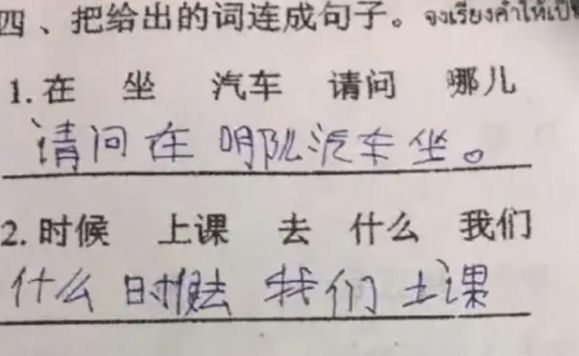 四、把给出的词连成句子。จงเรียงคำให้เป็
1.在 坐 汽车 请问 哪儿
请问在哪儿汽车坐。
2.时候 上课 去 什么 我们
什么时候去我们上课